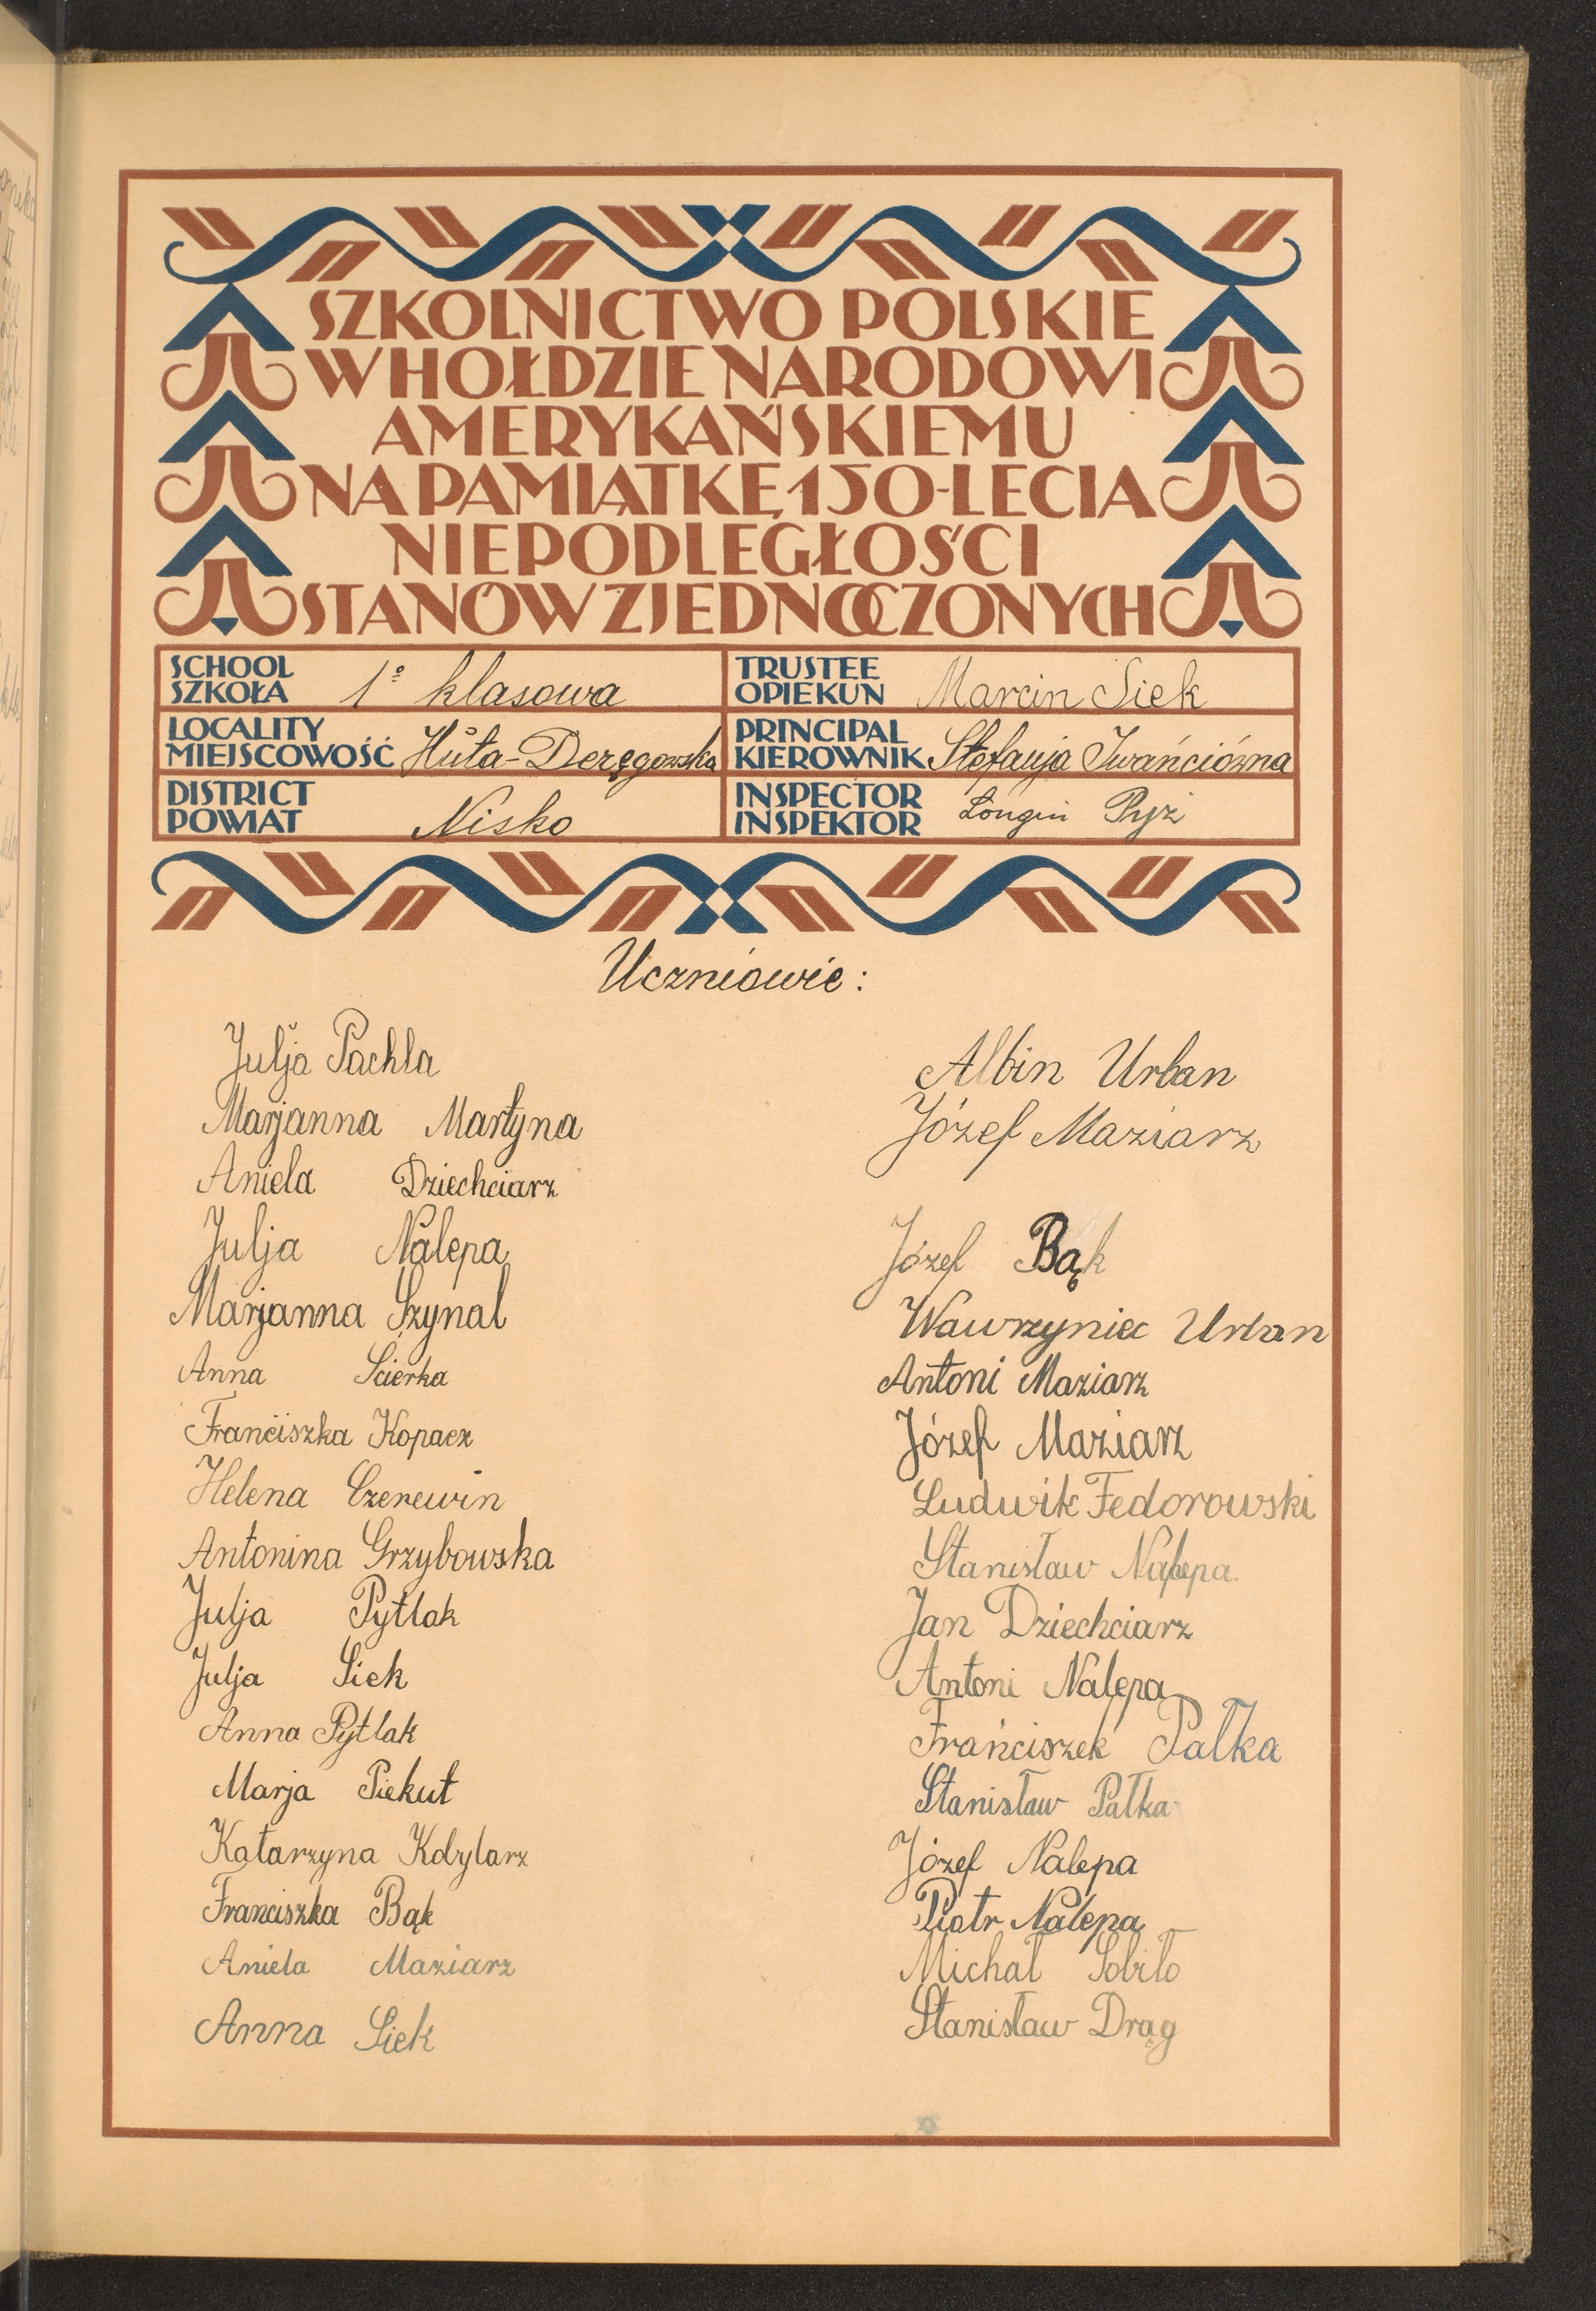 SZKOLNICTWO POLSKIE
W HOŁDZIE NARODOWI
AMERYKAŃSKIEMU
NA PAMIĄTKĘ 150-LECIA
NIEPODLEGŁOŚCI
STANÓW ZJEDNOCZONYCH
SCHOOL
SZKOŁA 1º klasowa
TRUSTEE
OPIEKUN Marcin Siek
LOCALITY
MIEJSCOWOŚĆ Huta-Deręgowska
PRINCIPAL
KIEROWNIK Stefanja Iwańciówna
DISTRICT
POWIAT Nisko
INSPECTOR
INSPEKTOR Longin Pyż
Uczniowie:
Julja Pachla
Marjanna Martyna
Aniela Dziechciarz
Julja Nalepa
Marjanna Szynal
Anna Ścierka
Franciszka Kopacz
Helena Czerewin
Antonina Grzybowska
Julja Pytlak
Julja Siek
Anna Pytlak
Marja Piekut
Katarzyna Kobylarz
Franciszka Bąk
Aniela Maziarz
Anna Siek
Albin Urban
Józef Maziarz
Józef Bąk
Wawrzyniec Urban
Antoni Maziarz
Józef Maziarz
Ludwik Fedorowski
Stanisław Nalepa
Jan Dziechciarz
Antoni Nalepa
Franciszek Pałka
Stanisław Pałka
Józef Nalepa
Piotr Nalepa
Michał Sobiło
Stanisław Drąg